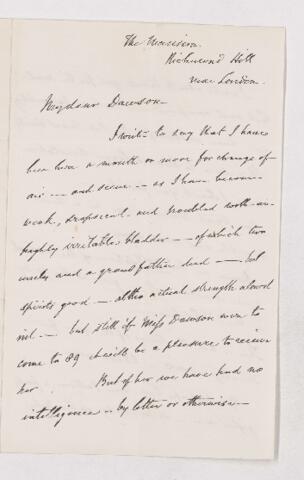 The Mansion
Richmond Hill
near London
My dear Dawson
I write to say that I have
been here a month or more for change of
air — and scene — as I have become
weak, and troubled with an
highly irritable bladder — of which two
uncles and a grandfather died — but
spirits good — altho actual strength almost
nil — but still if Miss Dawson were to
come to 89 it will be a pleasure to receive
her. But of her we have had no
intelligence — by letter or otherwise —